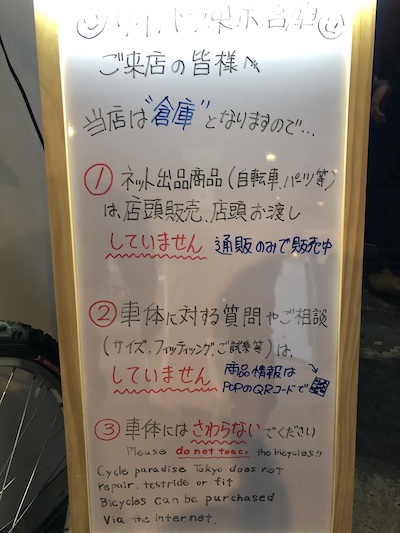 サイパラ東京倉庫
ご来店の皆様へ
当店は"倉庫"となりますので…
① ネット出品商品(自転車、パーツ等)
は、店頭販売、店頭お渡し
していません 通販のみで販売中
② 車体に対する質問やご相談
(サイズ、フィッティング、ご試乗等)は、
していません 商品情報は
POPのQRコードで
③ 車体にはさわらないでください
Please do not toac, the bicycles!!
Cycle paradise Tokyo does not
repair, testride or fit
Bicycles can be purchased
Via the internet.